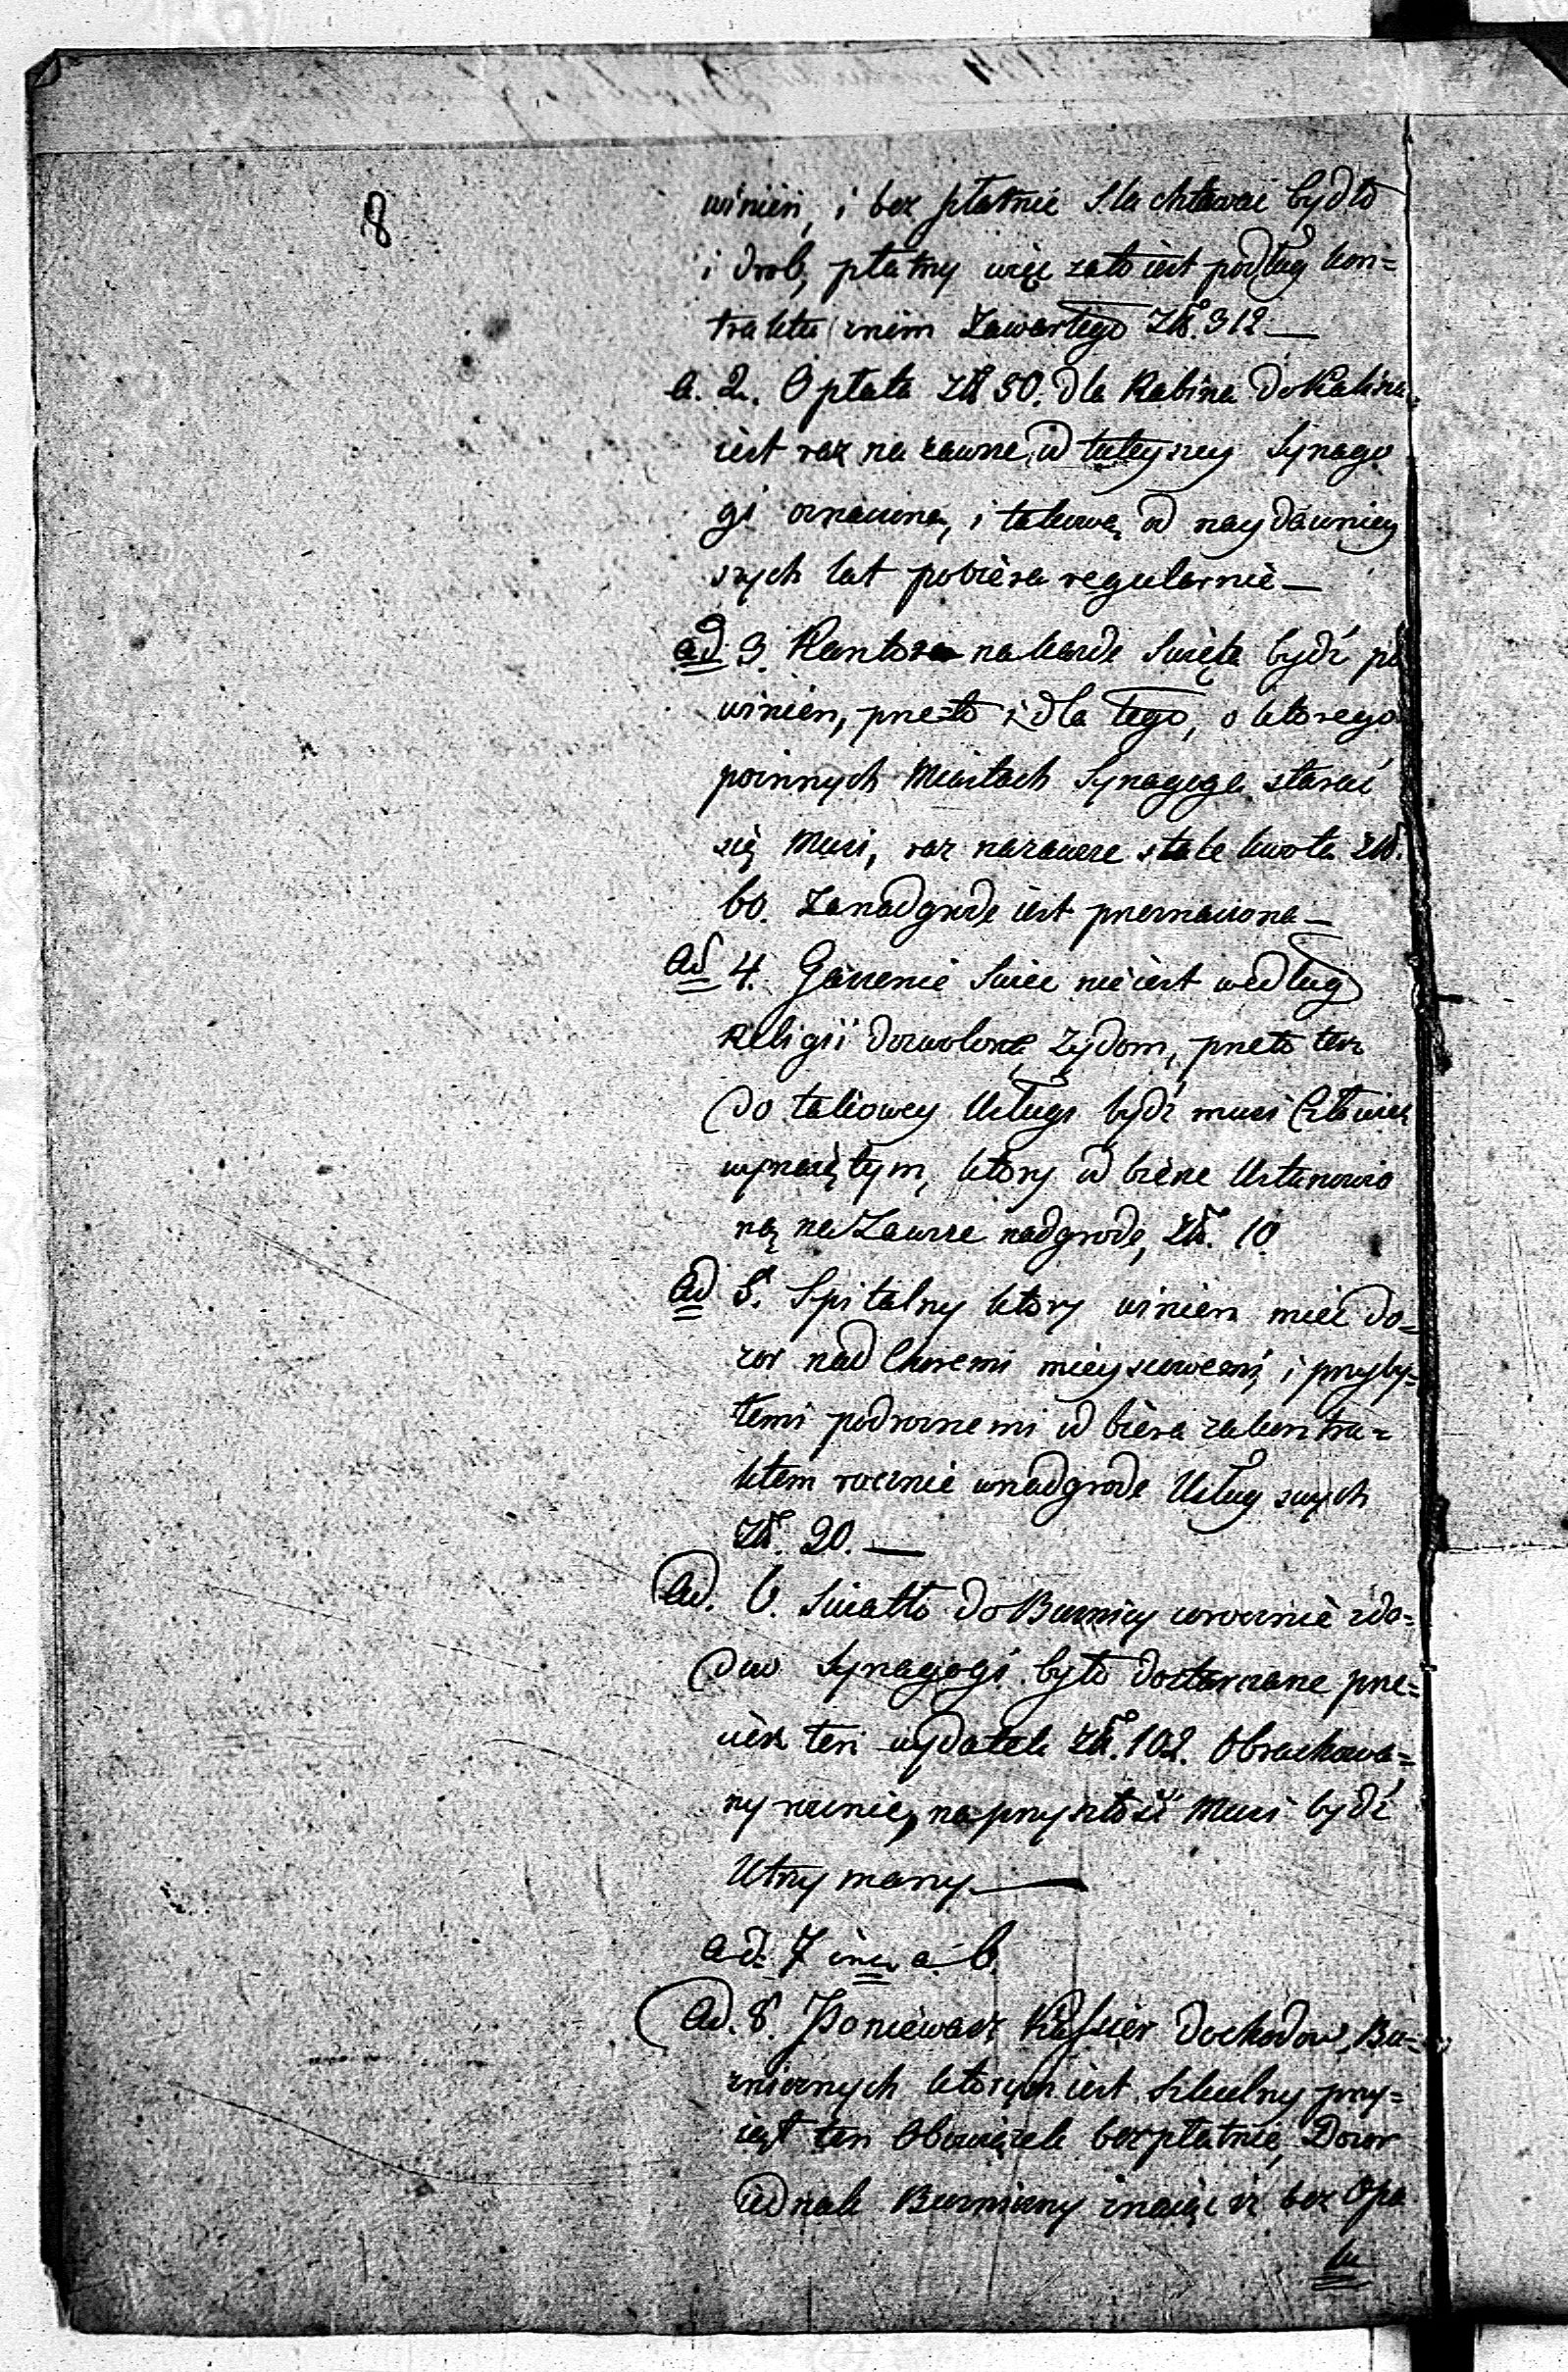 8
winien, i bez płatnie szlachtować bydło
i drob, płatny więc zato iest podług kon=
traktu z nim zawartego Złł. 312 —
a. 2. Opłata złł 50. dla Rabina do Kalisza
iest raz na zawsze w tuteyszey Synago
gi oznaczona, i takową od naydawniey
szych lat pobiera regularnie —
ad 3. Kantora na każde Święta bydź po
winien, przeto i dla tego, o ktorego
po innych Miastach Synagoga starać
się musi, raz nazawsze stale kwota złł.
60. za nadgrodę iest przeznaczona —
Ad 4. Gaszenie Swiec nie iest według
Religii dozwolone Żydom, przeto też
do takowey Usługi bydź musi Człowiek
wynaiętym, ktory odbierze Ustanowio
ną na Zawsze nadgrodę, złł. 10
Ad 5. Szpitalny ktory winien mieć do=
zor nad Choremi mieyscowemi, i przyby=
łemi podrożnemi odbiera za kontra=
ktem rocznie w nadgrodę Usług swych
złł. 20. —
Ad. 6. Swiatło do Buznicy corocznie z do=
dow Synagogi było dostarczane prze=
cież ten wydatek złł. 102. Obrachowa=
ny rocznie, na przyszłość Musi bydź
Utrzymany —
ad. 7 inc. a. 6.
Ad. 8. Ponieważ Kassier dochodow Bu=
zniczych ktorym iest Szkolny przy=
iął ten Obowiązek bezpłatnie, Dozor
iednak Buzniczny znaiąc iż bez Opa
łu